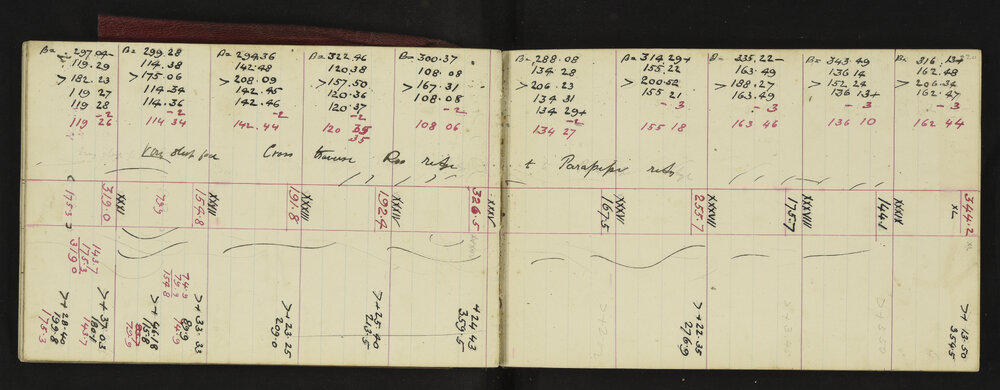 B= 297.04-
119.29
> 182.23
119 27
119 28
-2
119 26
B= 299.28
114.38
> 175.06
114.34
114.36
-2
114 34
B= 294.36
142.48
> 208.09
142.45
142.46
-2
142.44
B= 322.46
120.38
> 157.50
120.36
120.37
-2
120 35
35
B= 300.37
108.08
> 167.31
108.08
-2
108 06
B= 288.08
134 28
> 206.23
134 31
134 29+
-2
134 27
B= 314.29+
155.22
> 200.52
155 21
- 3
155 18
B= 335.22-
163.49
> 188.27
163.49
- 3
163 46
B= 343.49
136 14
> 152 24
136 13+
- 3
136 10
B= 316.13+
162.48
> 206.34
162.47
- 3
162 44
Cross traverse Ros ridge
t Parapipi
175.3
319.0
XXXI
79.9
154.8
XXXII
191.8
XXXIII
192.4
XXXIV
326.5
XXXV
167.5
XXXVI
255.7
XXXVII
175.7
XXXVIII
144.1
XXXIX
344.2
XL
143.7
175.3
319.0
74.9
79.9
154.8
>+ 28.40
199.8
175.3
>+ 37.03
180.1
143.7
>+ 46.18
115.8
79.9
>+ 33.33
89.9
74.9
>+ 23.25
209.0
>+ 25.40
213.5
+ 24.43
359.5
>+ 22.35
276.9
>+ 13.50
354.5